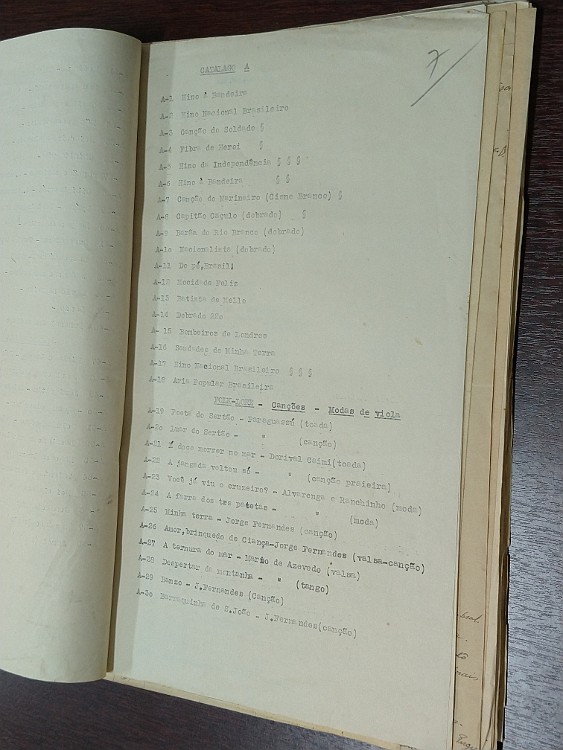 CATALAGO A
7
A-1 Hino à Bandeira
A-2 Hino Nacional Brasileiro
A-3 Canção do Soldado §
A-4 Fibra de Heroi §
A-5 Hino da Independência § § §
A-6 Hino à Bandeira § §
A-7 Canção do Marinheiro (Cisne Branco) §
A-8 Capitão Caçulo (dobrado) §
A-9 Barão do Rio Branco (dobrado)
A-10 Nacionalista (dobrado)
A-11 De pé, Brasil!
A-12 Mocidade Feliz
A-13 Batista de Mello
A-14 Dobrado
A-15 Bombeiros de Londres
A-16 Saudades de Minha Terra
A-17 Hino Nacional Brasileiro § § §
A-18 Aria Popular Brasileira
FOLK-LORE - Canções - Modas de viola
A-19 Poeta do Sertão - Paraguassú (toada)
A-20 Luar do Sertão - " (canção)
A-21 É doce morrer no mar - Dorival Caimi(toada)
A-22 A jangada voltou só - " (canção praieira)
A-23 Você já viu o cruzeiro? - Alvarenga e Ranchinho (moda)
A-24 A farra dos tes patetas - " (moda)
A-25 Minha terra - Jorge Fernandes (canção)
A-26 Amor, brinquedo de Ciança-Jorge Fernandes (valsa-canção)
A-27 A ternura do mar - Mário de Azevedo (valsa)
A-28 Despertar da montanha - " (tango)
A-29 Banzo - J.Fernandes (Canção)
A-30 Barraquinha de S.João - J.Fernandes(canção)